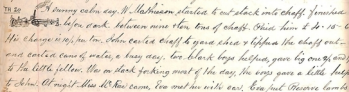 TH 20 A sunny calm day W. Mathieson started to cut stack into chaff, finished
before dark between nine & ten tons of chaff. Paid him £4-15-
His charge is 10/- per ton. John carted chaff to yard shed & tipped the chaff out
and carted cans of water, a busy day. two black boys helped, gave big one 2/6 and
to the little fellow. Was on stack forking most of the day, the boys gave a little help
to John. At night Miss McRae came, Eva met her with car. Eva put Reserve lambs